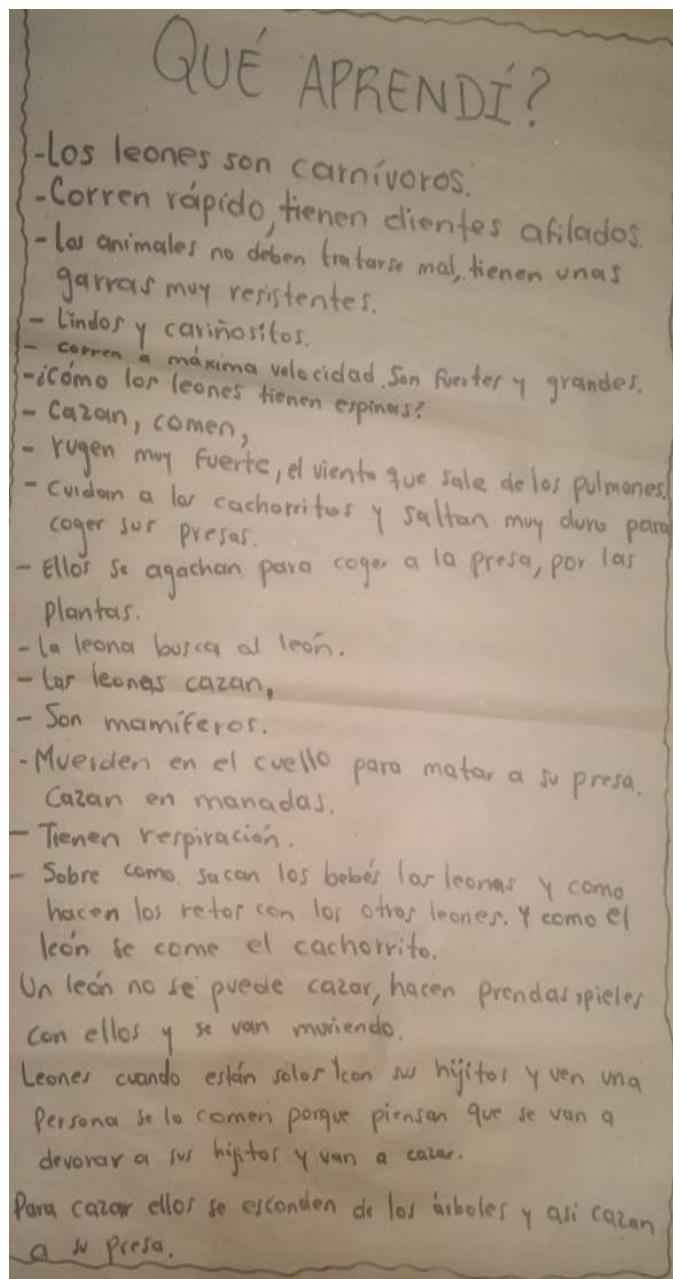 QUÉ APRENDÍ?
-Los leones son carnívoros.
-Corren rápido, tienen dientes afilados.
-los animales no deben tratarse mal, tienen unas
garras muy resistentes.
- Lindos y cariñositos.
- corren a máxima velocidad. Son fuertes y grandes.
-¿Cómo los leones tienen espinas?
- Cazan, comen,
- rugen muy fuerte, el viento que sale de los pulmones.
- cuidan a los cachorritos y saltan muy duro para
coger sus presas.
- Ellos se agachan para coger a la presa, por las
plantas.
- La leona busca al león.
- Las leonas cazan,
- Son mamíferos.
- Muerden en el cuello para matar a su presa.
Cazan en manadas.
- Tienen respiración.
- Sobre como sacan los bebés las leonas y como
hacen los retos con los otros leones. Y como el
león se come el cachorrito.
Un león no se puede cazar, hacen prendas, pieles
con ellos y se van muriendo.
Leones cuando están solos con sus hijitos y ven una
persona se lo comen porque piensan que se van a
devorar a sus hijitos y van a cazar.
Para cazar ellos se esconden de los árboles y asi cazan
a su presa.